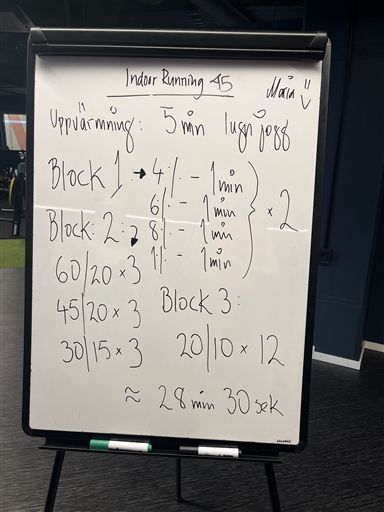 Indoor Running 45
Malin
Uppvärmning: 5 min lugn jogg
Block 1 → 4% - 1 min
6% - 1 min
8% - 1 min
1% - 1 min
} x 2
Block: 2:
60/20 x 3
45/20 x 3
30/15 x 3
Block 3:
20/10 x 12
≈ 28 min 30 sek